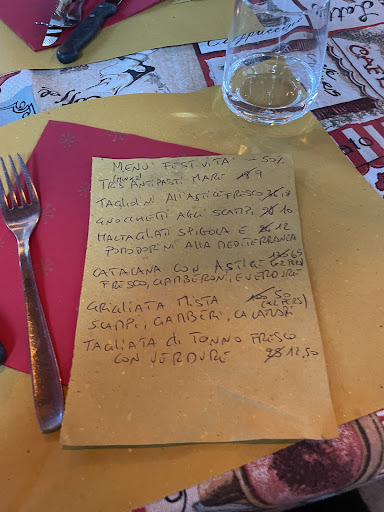 MENU' FESTIVITA' - 50%
(MIN X2)
TRIS ANTIPASTI MARE 18 9
TAGLIOLINI ALL'ASTICE FRESCO 36 18
GNOCCHETTI AGLI SCAMPI 20 10
MALTAGLIATI SPIGOLA E 24 12
POMODORINI ALLA MEDITERRANEA
CATALANA CON ASTICE 65
(X2 PERS)
FRESCO, GAMBERONI, E VERDURE
GRIGLIATA MISTA 100 50
(X2 PERS)
SCAMPI, GAMBERI, CALAMARI
TAGLIATA DI TONNO FRESCO
CON VERDURE 25 12,50
Cappuccino